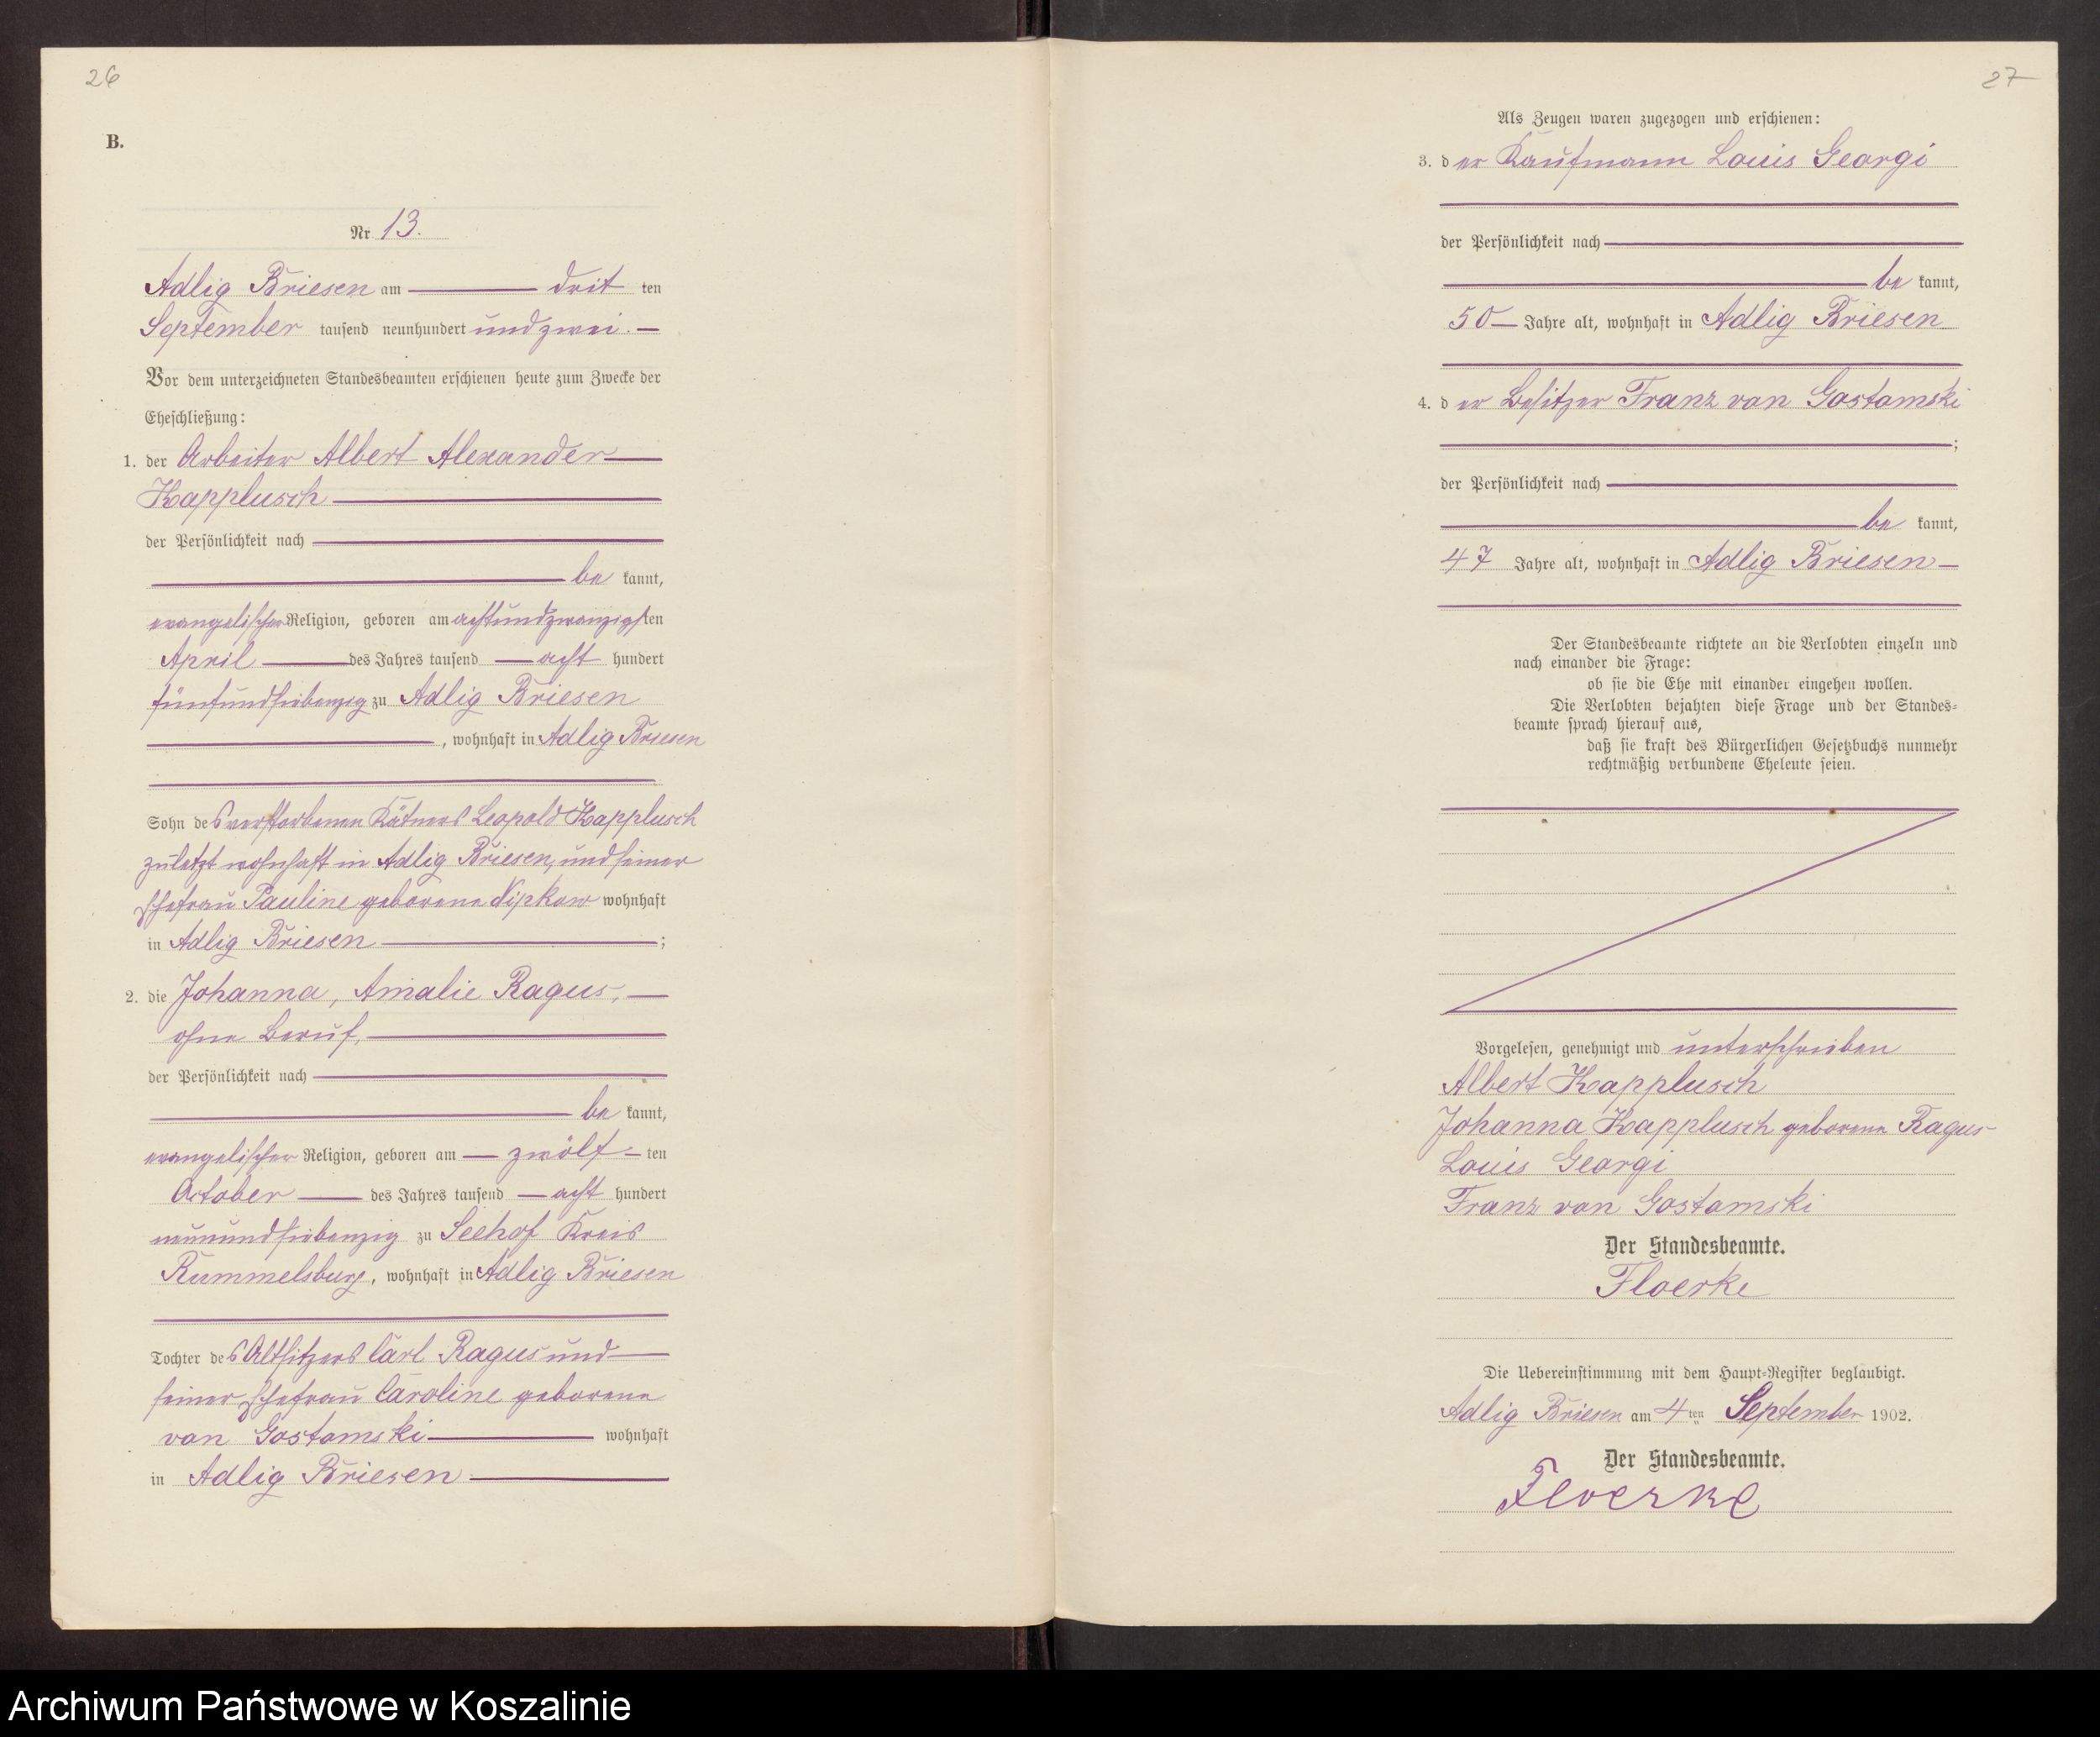 26
B.
Nr. 13.
Adlig Briesen am drit ten
September tausend neunhundert und zwei.
Vor dem unterzeichneten Standesbeamten erschienen heute zum Zwecke der
Eheschließung:
1. der Arbeiter Albert Alexander
Kapplusch
der Persönlichkeit nach
be kannt,
evangelischer Religion, geboren am achtundzwanzigsten
April des Jahres tausend acht hundert
fünfundsiebenzig zu Adlig Briesen
, wohnhaft in Adlig Briesen
Sohn des verstorbenen Kätners Leopold Kapplusch
zuletzt wohnhaft in Adlig Briesen, und seiner
Ehefrau Pauline geborene Nipkow wohnhaft
in Adlig Briesen ;
2. die Johanna, Amalie Ragus,
ohne Beruf,
der Persönlichkeit nach
be kannt,
evangelischer Religion, geboren am zwölf ten
October des Jahres tausend acht hundert
neunundsiebenzig zu Seehof Kreis
Rummelsburg, wohnhaft in Adlig Briesen
Tochter des Altsitzers Carl Ragus und
seiner Ehefrau Caroline geborene
von Gostomski wohnhaft
in Adlig Briesen
27
Als Zeugen waren zugezogen und erschienen:
3. der Kaufmann Louis Georgi
der Persönlichkeit nach
be kannt,
50 Jahre alt, wohnhaft in Adlig Briesen
4. der Besitzer Franz von Gostomski
;
der Persönlichkeit nach
be kannt,
47 Jahre alt, wohnhaft in Adlig Briesen
Der Standesbeamte richtete an die Verlobten einzeln und
nach einander die Frage:
ob sie die Ehe mit einander eingehen wollen.
Die Verlobten bejahten diese Frage und der Standes-
beamte sprach hierauf aus,
daß sie kraft des Bürgerlichen Gesetzbuchs nunmehr
rechtmäßig verbundene Eheleute seien.
Vorgelesen, genehmigt und unterschrieben
Albert Kapplusch
Johanna Kapplusch geborene Ragus
Louis Georgi
Franz von Gostomski
Der Standesbeamte.
Floerke
Die Uebereinstimmung mit dem Haupt-Register beglaubigt.
Adlig Briesen am 4ten September 1902.
Der Standesbeamte.
Floerke
Archiwum Państwowe w Koszalinie